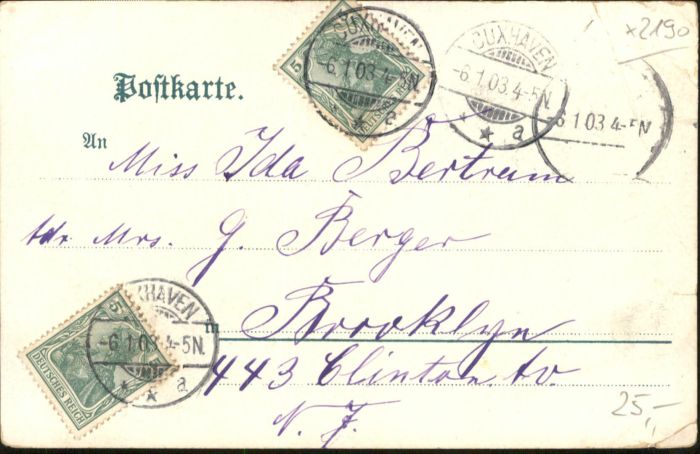 x2190
5
CUXHAVEN
-6.1.03.4-5N.
* a
DEUTSCHES REICH
CUXHAVEN
-6.1.03.4-5N.
* a
-6.1.03.4-5N
Postkarte.
An
Miss Ida Bertram
Mrs. G. Berger
in Brooklyn
443 Clinton Av.
N. J.
5
DEUTSCHES REICH
XHAVEN
-6.1.03.4-5N.
* * a
25,-